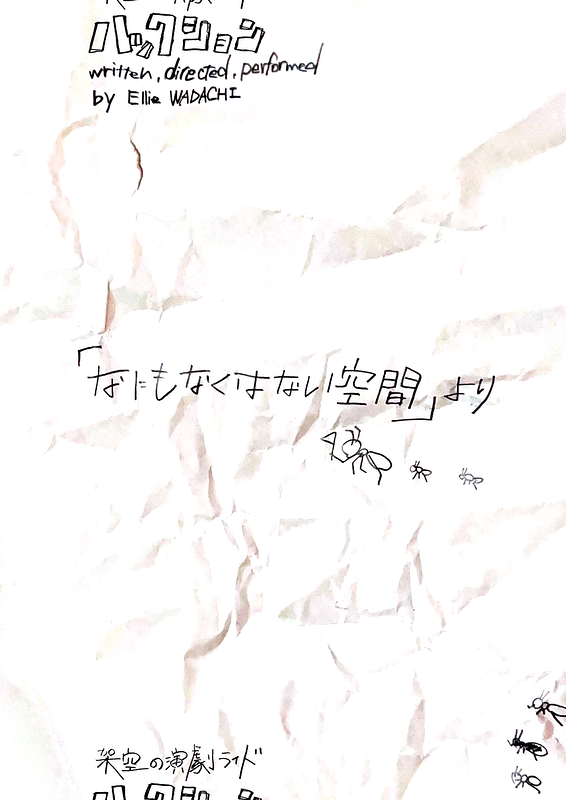 ハックション
written, directed, performed
by Ellie WADACHI
「なにもなくはない空間」より
架空の演劇ライド
ハックション